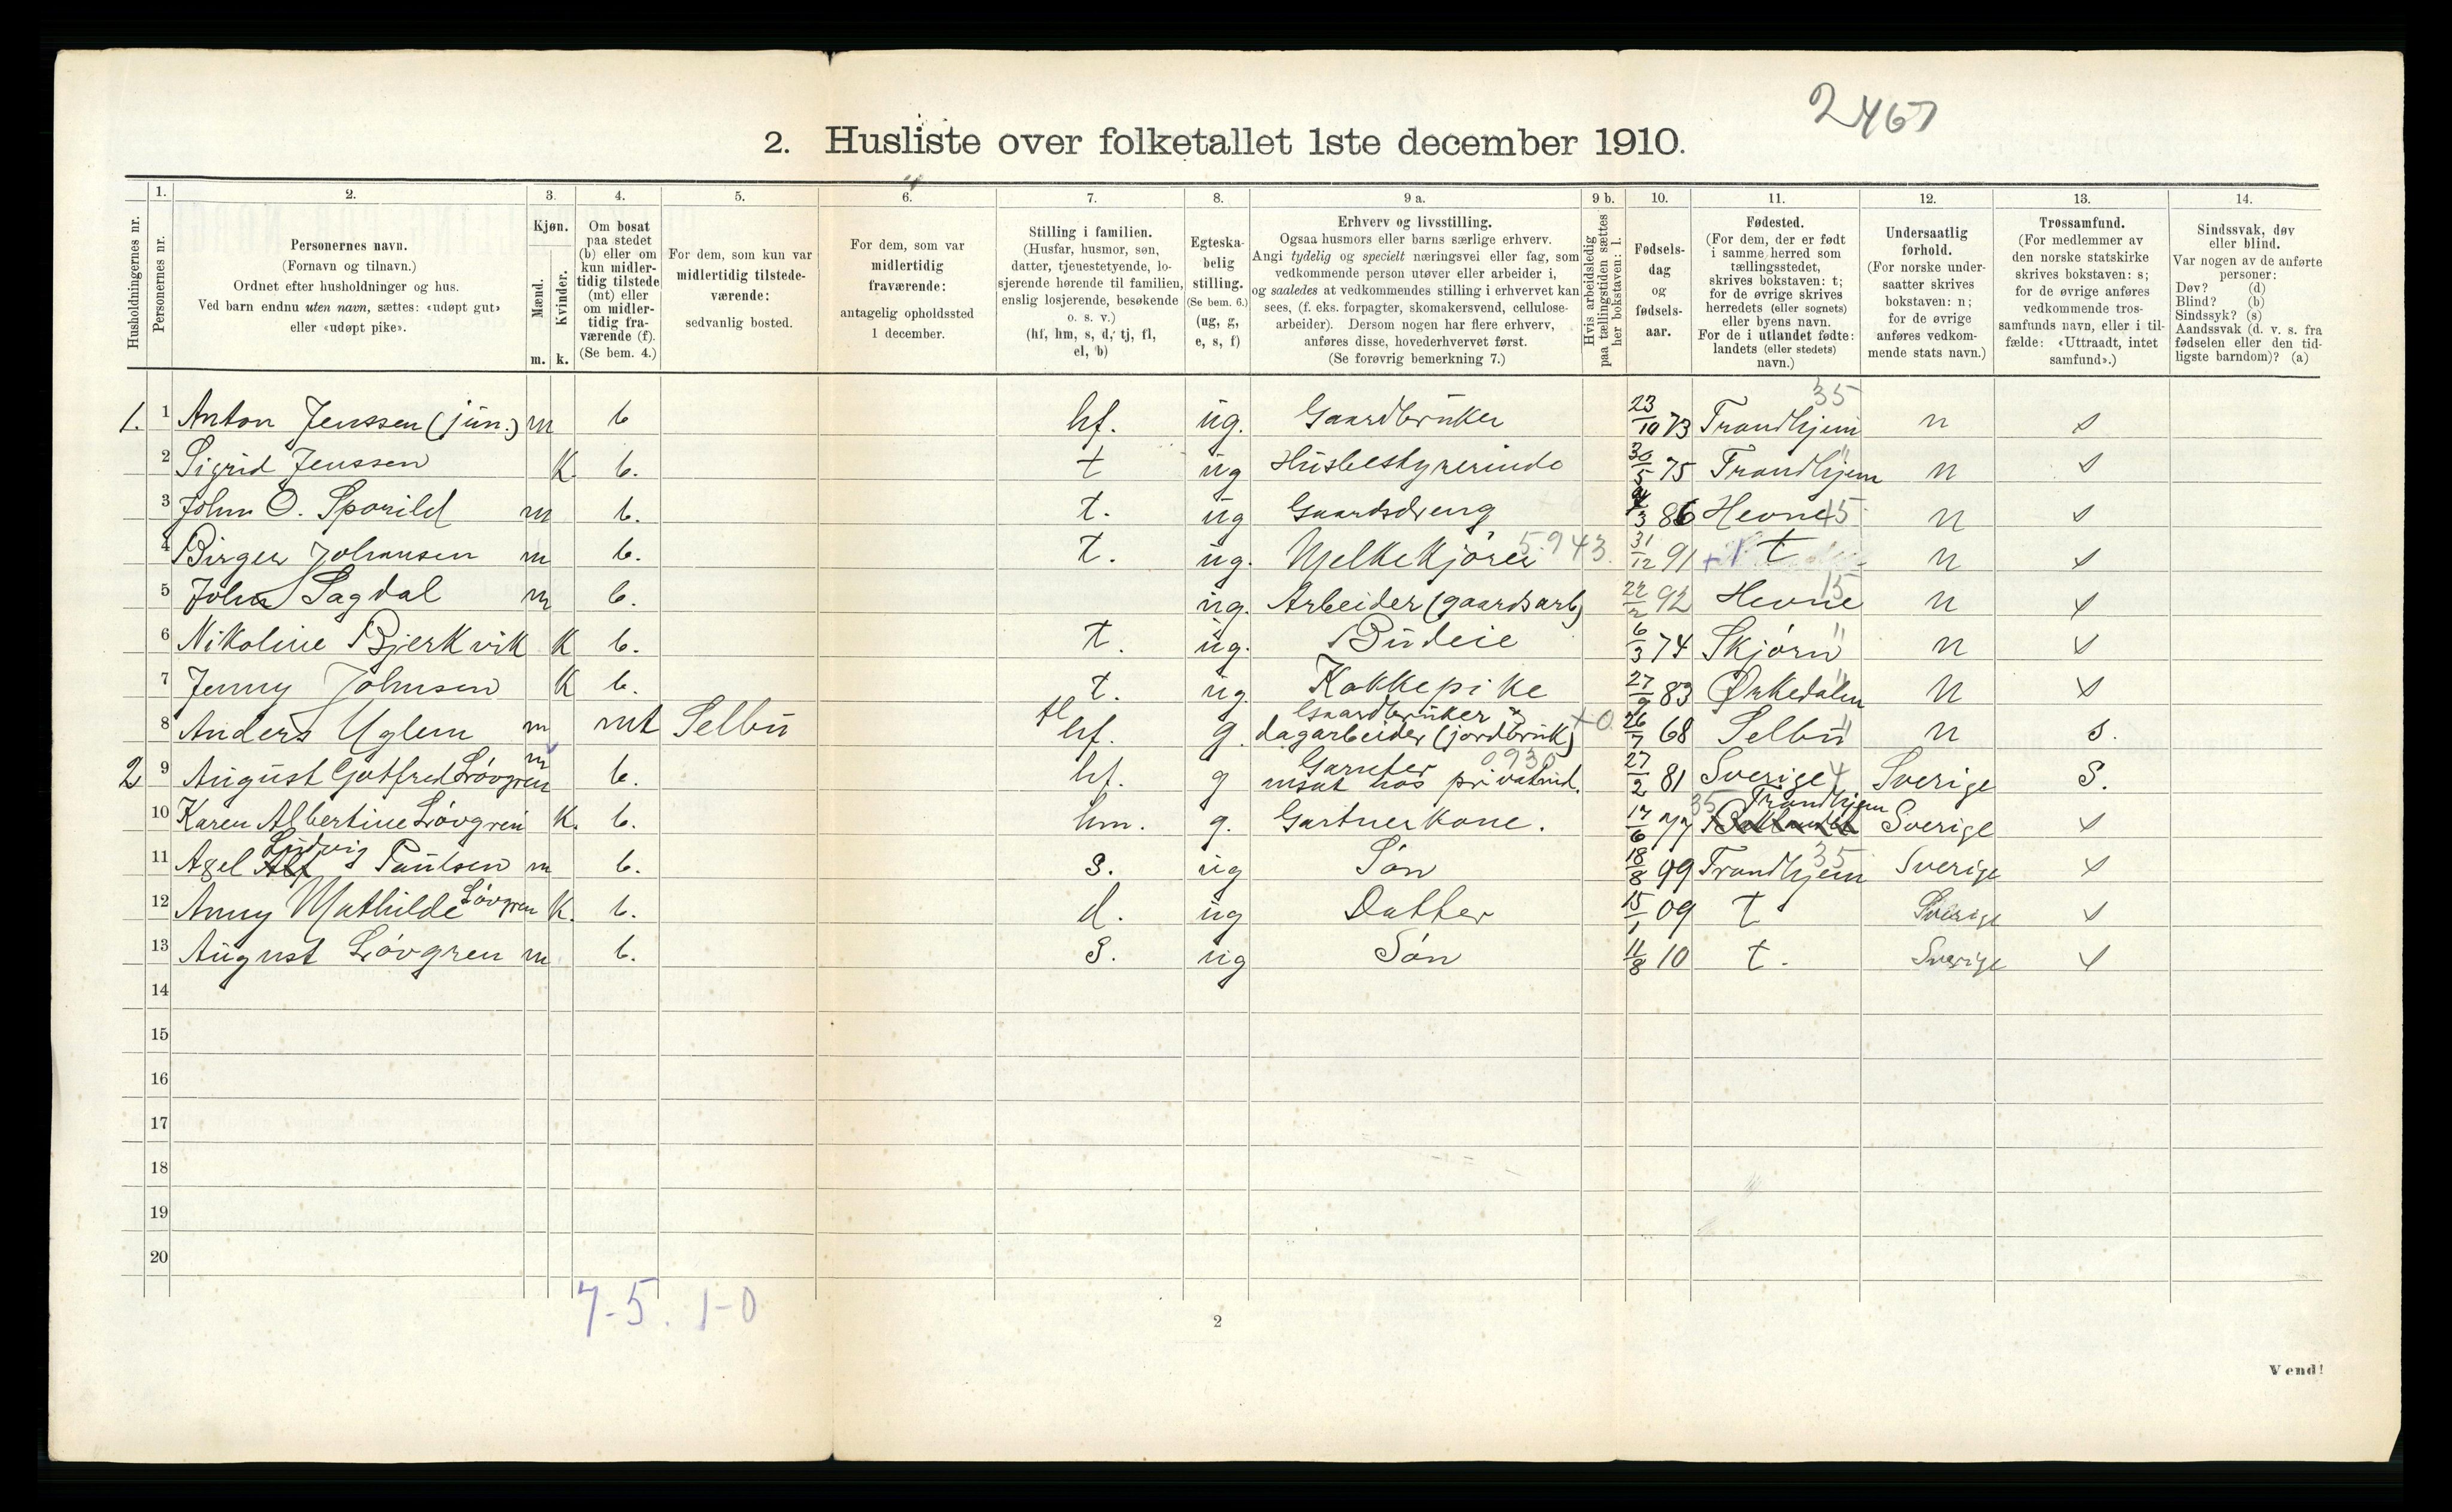 2467
2. Husliste over folketallet 1ste december 1910.
Husholdningernes nr.
1. Personernes nr.
2. Personernes navn.
(Fornavn og tilnavn.)
Ordnet efter husholdninger og hus.
Ved barn endnu uten navn, sættes: «udøpt gut»
eller «udøpt pike».
3. Kjøn.
Mænd. Kvinder.
m. k.
4. Om bosat
paa stedet
(b) eller om
kun midler-
tidig tilstede
(mt) eller
om midler-
tidig fra-
værende (f).
(Se bem. 4.)
5. For dem, som kun var
midlertidig tilstede-
værende:
sedvanlig bosted.
6. For dem, som var
midlertidig
fraværende:
antagelig opholdssted
1 december.
7. Stilling i familien.
(Husfar, husmor, søn,
datter, tjenestetyende, lo-
sjerende hørende til familien,
enslig losjerende, besøkende
o. s. v.)
(hf, hm, s, d, tj, fl,
el, b)
8. Egteska-
belig
stilling.
(Se bem. 6.)
(ug, g,
e, s, f)
9 a. Erhverv og livsstilling.
Ogsaa husmors eller barns særlige erhverv.
Angi tydelig og specielt næringsvei eller fag, som
vedkommende person utøver eller arbeider i,
og saaledes at vedkommendes stilling i erhvervet kan
sees, (f. eks. forpagter, skomakersvend, cellulose-
arbeider). Dersom nogen har flere erhverv,
anføres disse, hovederhvervet først.
(Se forøvrig bemerkning 7.)
9 b. Hvis arbeidsledig
paa tællingstiden sættes
her bokstaven: l.
10. Fødsels-
dag
og
fødsels-
aar.
11. Fødested.
(For dem, der er født
i samme herred som
tællingsstedet,
skrives bokstaven: t;
for de øvrige skrives
herredets (eller sognets)
eller byens navn.
For de i utlandet fødte:
landets (eller stedets)
navn.)
12. Undersaatlig
forhold.
(For norske under-
saatter skrives
bokstaven: n;
for de øvrige
anføres vedkom-
mende stats navn.)
13. Trossamfund.
(For medlemmer av
den norske statskirke
skrives bokstaven: s;
for de øvrige anføres
vedkommende tros-
samfunds navn, eller i til-
fælde: «Uttraadt, intet
samfund».)
14. Sindssvak, døv
eller blind.
Var nogen av de anførte
personer:
Døv? (d)
Blind? (b)
Sindssyk? (s)
Aandssvak (d. v. s. fra
fødselen eller den tid-
ligste barndom)? (a)
1. 1 Anton Jenssen (jun.) m b hf. ug. Gaardbruker 23/10 73 Trondhjem 35 n s
2 Sigrid Jenssen K b. t ug Husbestyrerinde 30/5 75 Trondhjem " n s
3 John O. Sporild m b. t. ug Gaardsdreng /3 86 Hevne 15 n s
4 Birger Johansen m b. t. ug. Melkekjører 5.943. 31/12 91 t n s
5 John Sagdal m b. ug. Arbeider (gaardsarb) 22/2 92 Hevne 15 n s
6 Nikoline Bjerkvik K b. t. ug. Budeie 6/3 74 Skjørn " n s
7 Jenny Johnsen K b. t. ug. Kokkepike 27/9 83 Ørkedalen " n s
8 Anders Uglem m mt Selbu fl hf. g. Gaardbruker x dagarbeider (jordbruk) +0. 26/7 68 Selbu " n s.
2 9 August Gotfred Lövgren m b. hf. g Gartner 0930 ansat hos privatmd. 27/2 81 Sverige 4 Sverige S.
10 Karen Albertine Lövgren K. b. hm. g. Gartnerkone. 17/6 77 35 Trondhjem Sverige s
11 Axel Alf Ludvig Paulsen m b. s. ug Søn 18/8 99 Trondhjem 35 Sverige s
12 Anny Mathilde Lövgren K. b. d. ug Datter 15/1 09 t Sverige s
13 August Lövgren m b. s. ug Søn 11/8 10 t. Sverige s
14
15
16
17
18
19
20
7-5. 1-0
2
Vend!